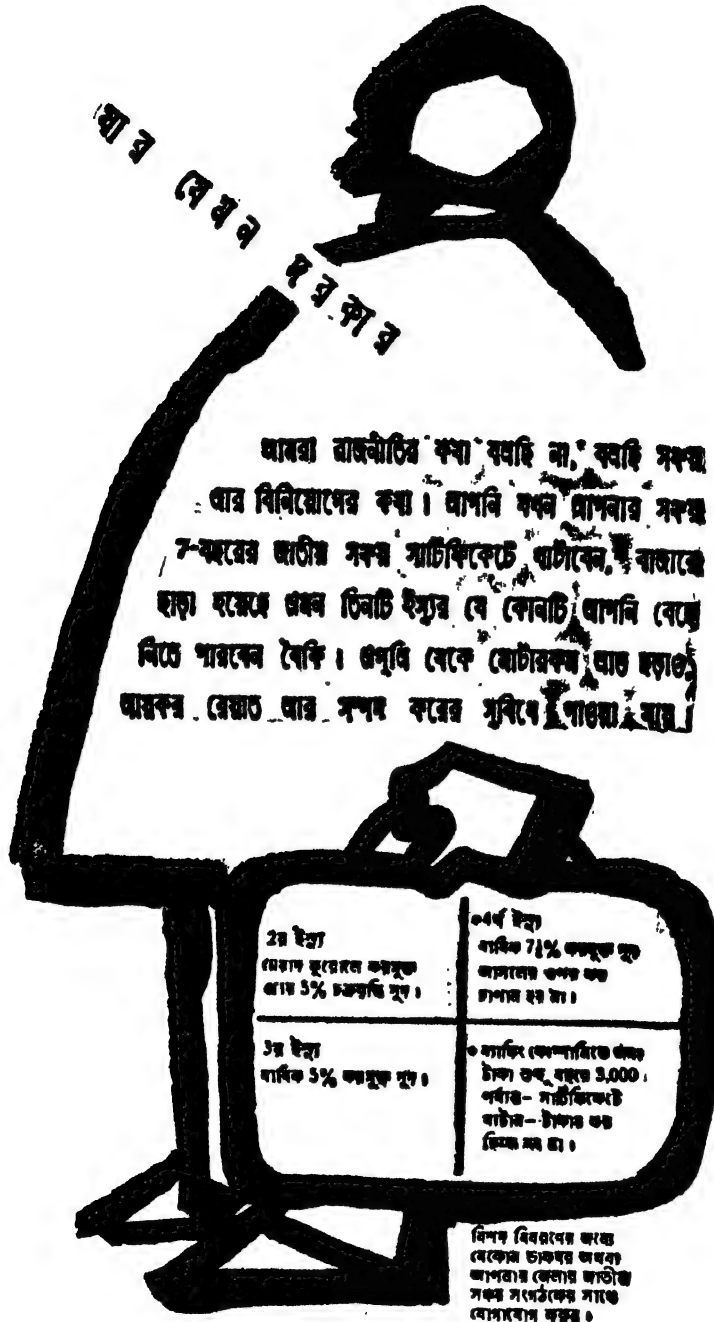 যার যেমন দরকার
আমরা রাজনীতির কথা বলছি না, বলছি সঞ্চয়
আর বিনিয়োগের কথা। আপনি যখন আপনার সঞ্চয়
7-বছরের জাতীয় সঞ্চয় সার্টিফিকেটে খাটাবেন, বাজারে
ছাড়া হয়েছে এমন তিনটি ইস্যুর যে কোনটি আপনি বেছে
নিতে পারবেন বৈকি। এগুলি থেকে মোটারকম লাভ ছাড়াও
আয়কর রেয়াত আর সম্পদ করের সুবিধে পাওয়া যায়।
2য় ইস্যু
মেয়াদ ফুরোলে করমুক্ত
প্রায় 5% চক্রবৃদ্ধি সুদ।
4র্থ ইস্যু
বার্ষিক 7½% করমুক্ত সুদ
আসলের ওপর কর
চাপান হয় না।
3য় ইস্যু
বার্ষিক 5% করমুক্ত সুদ।
ব্যাঙ্কিং কোম্পানিতে জমার
টাকা শুদ্ধ বছরে 3,000
পর্যন্ত- সার্টিফিকেটে
খাটান- টাকার কর
হিসেব হয় না।
বিশদ বিবরণের জন্যে
যেকোন ডাকঘর অথবা
আপনার জেলার জাতীয়
সঞ্চয় সংগঠকের সাথে
যোগাযোগ করুন।